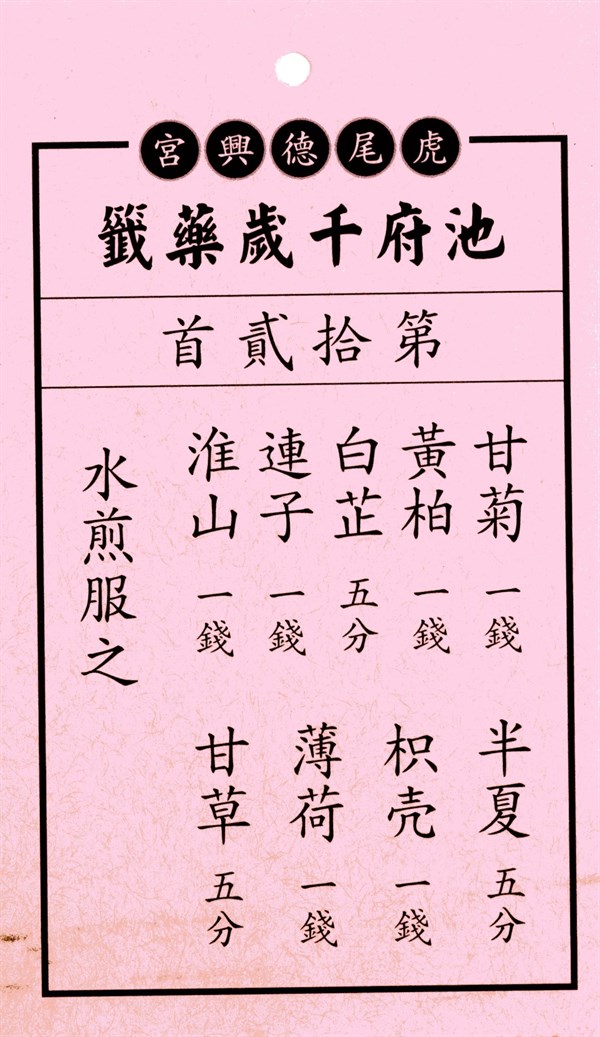 虎尾德興宮
池府千歲藥籤
第拾貳首
甘菊 一錢
黃柏 一錢
白芷 五分
連子 一錢
淮山 一錢
半夏 五分
枳壳 一錢
薄荷 一錢
甘草 五分
水煎服之